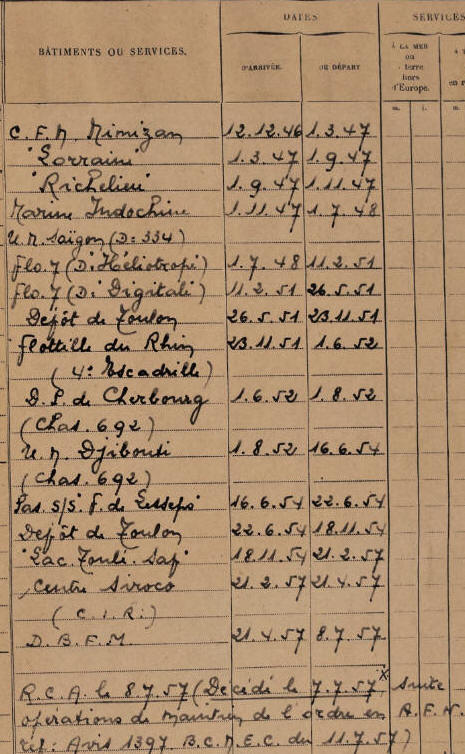 BÂTIMENTS OU SERVICES.
DATES
SERVICES
D'ARRIVÉE.
DE DÉPART
À LA MER
ou
terre
hors
d'Europe.
en
m. j. m.
C.F.M. Mimizan 12.12.46 1.3.47
"Lorraine" 1.3.47 1.9.47
"Richelieu" 1.9.47 1.11.47
Marine Indochine 1.11.47 1.7.48
U.M. Saïgon (D: 334)
Flo.7 (D: Héliotrope) 1.7.48 11.2.51
Flo.7 (D: Digitale) 11.2.51 26.5.51
Dépôt de Toulon 26.5.51 23.11.51
Flottille du Rhin 23.11.51 1.6.52
(4e Escadrille)
D.P. de Cherbourg 1.6.52 1.8.52
(Chas. 692)
U.M. Djibouti 1.8.52 16.6.54
(Chas. 692)
Pas. s/s. F. de Lesseps 16.6.54 22.6.54
Dépôt de Toulon 22.6.54 18.11.54
18.11.54 21.2.57
Centre Siroco 21.2.57 21.4.57
(C.I.R.)
D.B.F.M. 21.4.57 8.7.57
R.C.A. le 8.7.57 (Décédé le 7.7.57 x suite
opérations de maintien de l'ordre en A.F.N.
réf: Avis 1397 B.C.M.E.C. du 11.7.57)